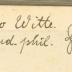 o Witte.
nd. phil.